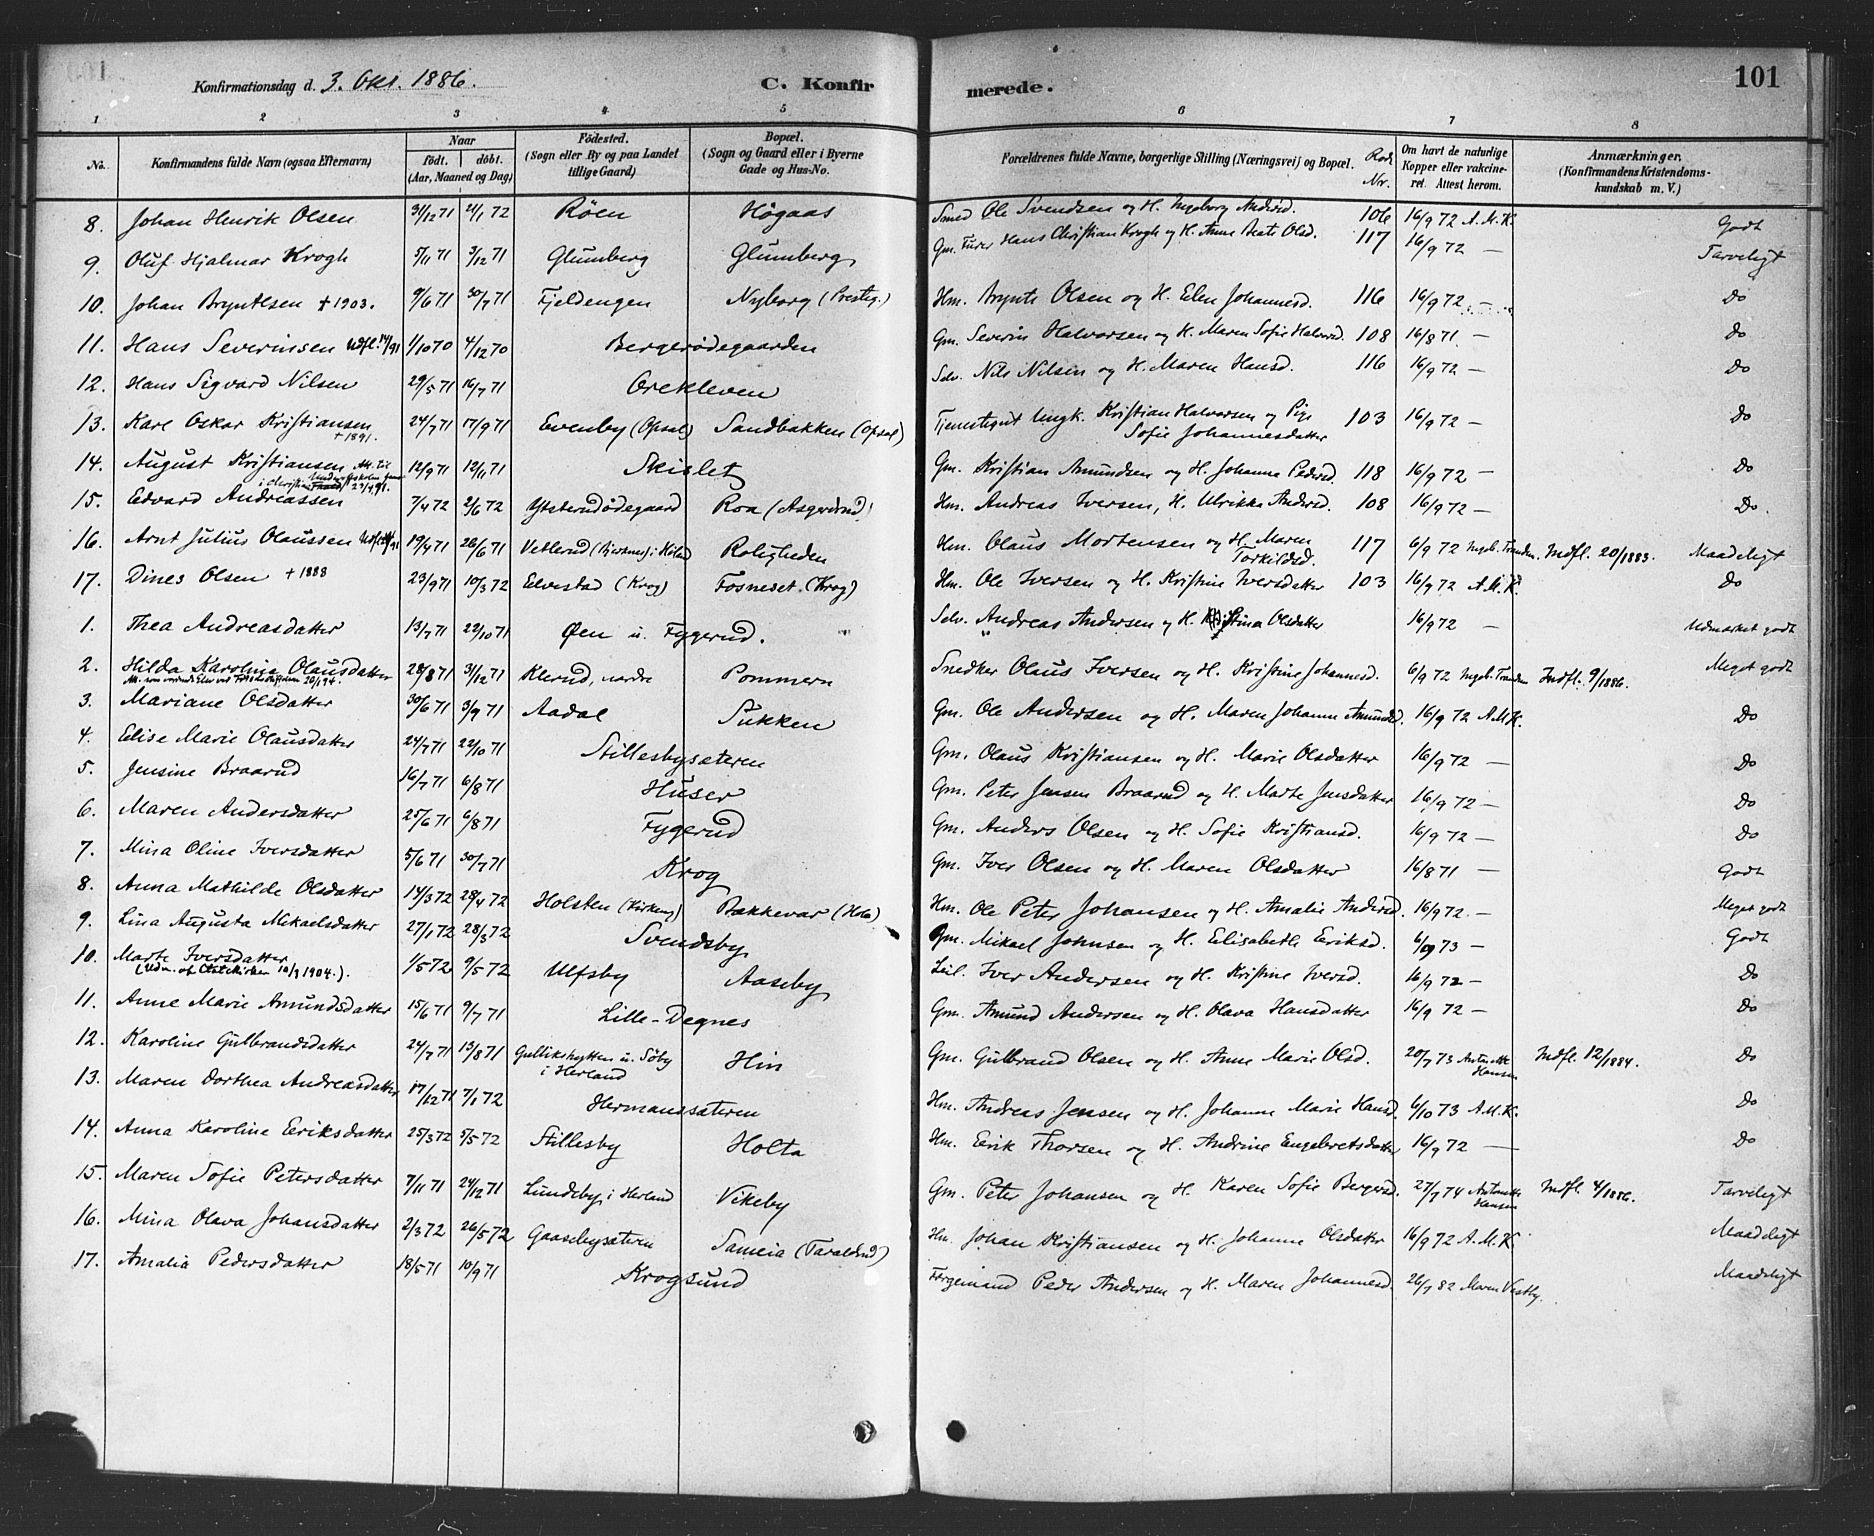 Konfirmationsdag d. 3. Okt. 1886. C. Konfirmerede. 101
1 2 3 4 5 6 7 8
No. Konfirmandens fulde Navn (ogsaa Efternavn) Naar født. døbt. (Aar, Maaned og Dag) Fødested. (Sogn eller By og paa Landet tillige Gaard) Bopæl. (Sogn og Gaard eller i Byerne Gade og Hus-No. Forældrenes fulde Navne, borgerlige Stilling (Næringsvei) og Bopæl. Rode Nr. Om havt de naturlige Kopper eller vakcineret. Attest herom. Anmærkninger. (Konfirmandens Kristendomskundskab m. V.)
8. Johan Henrik Olsen 31/12 71 21/1 72 Röen Högaas Smed Ole Svendsen og H. Ingeborg Andersd. 106 16/9 72 A.M.K. Godt
9. Oluf Hjalmar Krogh 5/11 71 3/12 71 Glumberg Glumberg Gm. Furer Hans Christian Krogh og H. Anne Beate Olsd. 117 16/9 72 — Tarveligt
10. Johan Bryntesen † 1903. 9/6 71 30/7 71 Fjeldengen Nyborg (Presteg.) Hm. Brynte Olsen og H. Elen Johannesd. 116 16/9 72 — Do
11. Hans Severinsen Udfl. 14/91 1/10 70 4/12 70 Bergerödegaarden Gm. Severin Halvorsen og H. Maren Sofie Halvorsd. 108 16/8 71 — Do
12. Hans Sigvard Nilsen 29/5 71 16/7 71 Orekleven Selv. Nils Nilsen og H. Maren Hansd. 116 16/9 72 — Do
13. Karl Oskar Kristiansen † 1891. 24/7 71 17/9 71 Evenby (Opsal) Sandbakken (Opsal) Tjenestegut Ungk. Kristian Halvorsen og Pige Sofie Johannesdatter 103 16/9 72 — Do
14. August Kristiansen 12/9 71 12/11 71 Skislet Gm. Kristian Amundsen og H. Johanne Pedersd. 118 16/9 72 — Do
15. Edvard Andreassen 7/4 72 2/6 72 Ytsterudödegaard Roa (Asgerdrud) Hm. Andreas Iversen, H. Ulrikke Andersd. 108 16/9 72 — Do.
16. Arnt Julius Olaussen 19/4 71 26/6 71 Vetlerud (Bjerknes) i Höland Roligheden Hm. Olaus Mortensen og H. Maren Torkildsd. 117 6/9 72 Ingeb. Tranden. Indfl. 20/1883. Maadeligt
17. Dines Olsen † 1888 23/9 71 10/3 72 Elvestad (Krog) Fosneset (Krog) Hm. Ole Iversen og H. Kristine Iversdatter 103 16/9 72 A.M.K. Do
1. Thea Andreasdatter 13/7 71 22/10 71 Øen u. Fygerud. Selv. Andreas Andersen og H. Kristina Olsdatter 16/9 72 — Udmærket godt
2. Hilda Karoline Olausdatter 28/8 71 31/12 71 Klerud, nordre Pommern Snedker Olaus Iversen og H. Kristine Johannesd. 6/9 72 Ingeb. Tranden Indfl. 9/1886. Meget godt
3. Mariane Olsdatter 30/6 71 3/9 71 Aadal Sukken Gm. Ole Andersen og H. Maren Johanne Amundsd. 16/9 72 A.M.K. Do
4. Elise Marie Olausdatter 24/7 71 22/10 71 Stillesbysæteren Gm. Olaus Kristiansen og H. Marie Olsdatter 16/9 72 — Do
5. Jensine Braarud 16/7 71 6/8 71 Huser Gm. Peter Jensen Braarud og H. Marte Jensdatter 16/9 72 — Do
6. Maren Andersdatter 25/6 71 6/8 71 Fygerud Gm. Anders Olsen og H. Sofie Kristiansd. 16/9 72 — Do
7. Mina Oline Iversdatter 5/6 71 30/7 71 Krog Gm. Iver Olsen og H. Maren Olsdatter 16/8 71 Godt
8. Anna Mathilde Olsdatter 14/3 72 28/4 72 Holsten (Kirkeng) Bækkevar (Hola) Hm. Ole Peter Johansen og H. Amalie Andersd. 16/9 72. — Meget godt
9. Lina Augusta Mikaelsdatter 27/1 72 28/3 72 Svendsby Gm. Mikael Johnsen og H. Elisabeth Eriksd. 6/10 73 — Godt
10. Marte Iversdatter (Udm. af Statskirken 10/9 1904.). 1/5 72 9/5 72 Ulfsby Aaseby Leil. Iver Andersen og H. Kristine Iversd. 16/9 72 — Do
11. Anne Marie Amundsdatter 15/6 71 9/7 71 Lille-Degnes Gm. Amund Andersen og H. Olava Hansdatter 16/9 72 — Do
12. Karoline Gulbrandsdatter 24/7 71 13/8 71 Gullikshytten u. Söby i Herland Hin Gm. Gulbrand Olsen og H. Anne Marie Olsd. 20/7 73 Antonette Hansen Indfl. 12/1884. Do
13. Maren Dorthea Andreasdatter 17/12 71 7/1 72 Hermanssæteren Hm. Andreas Jensen og H. Johanne Marie Hansd. 6/10 73 A.M.K. Do
14. Anna Karoline Eriksdatter 25/3 72 5/5 72 Stillesby Holta Hm. Erik Thorsen og H. Andrine Engebretsdatter 16/9 72 — Do
15. Maren Sofie Petersdatter 7/11 71 24/12 71 Lundeby i Herland Vikeby Gm. Peter Johansen og H. Karen Sofie Bergersd. 27/7 74 Antonette Hansen Indfl. 4/1886. Tarveligt
16. Mina Olava Johansdatter 2/3 72 26/5 72 Gaasebysætern Sameia (Taraldrud) Hm. Johan Kristiansen og H. Johanne Olsdatter 16/9 72 A.M.K. Maadeligt
17. Amalia Pedersdatter 18/5 71 10/9 71 Krogsund Færgemand Peder Andersen og H. Maren Johannesd. 26/7 82 Maren Vestby. Maadeligt